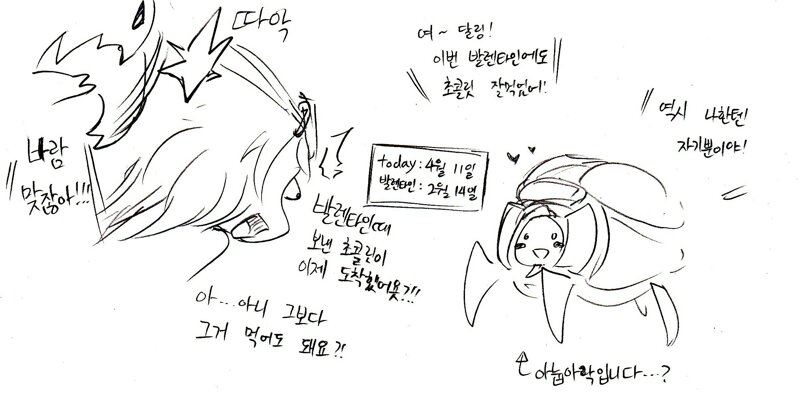 따악
바람
맞잖아!!!
여~ 달링!
이번 발렌타인에도
초콜릿 잘먹었어!
역시 나한텐!
자기뿐이야!
today : 4월 11일
발렌타인 : 2월 14일
발렌타인때
보낸 초콜릿이
이제 도착했어욧?!!
아...아니 그보다
그거 먹어도 돼요?!
아눕아락입니다...?